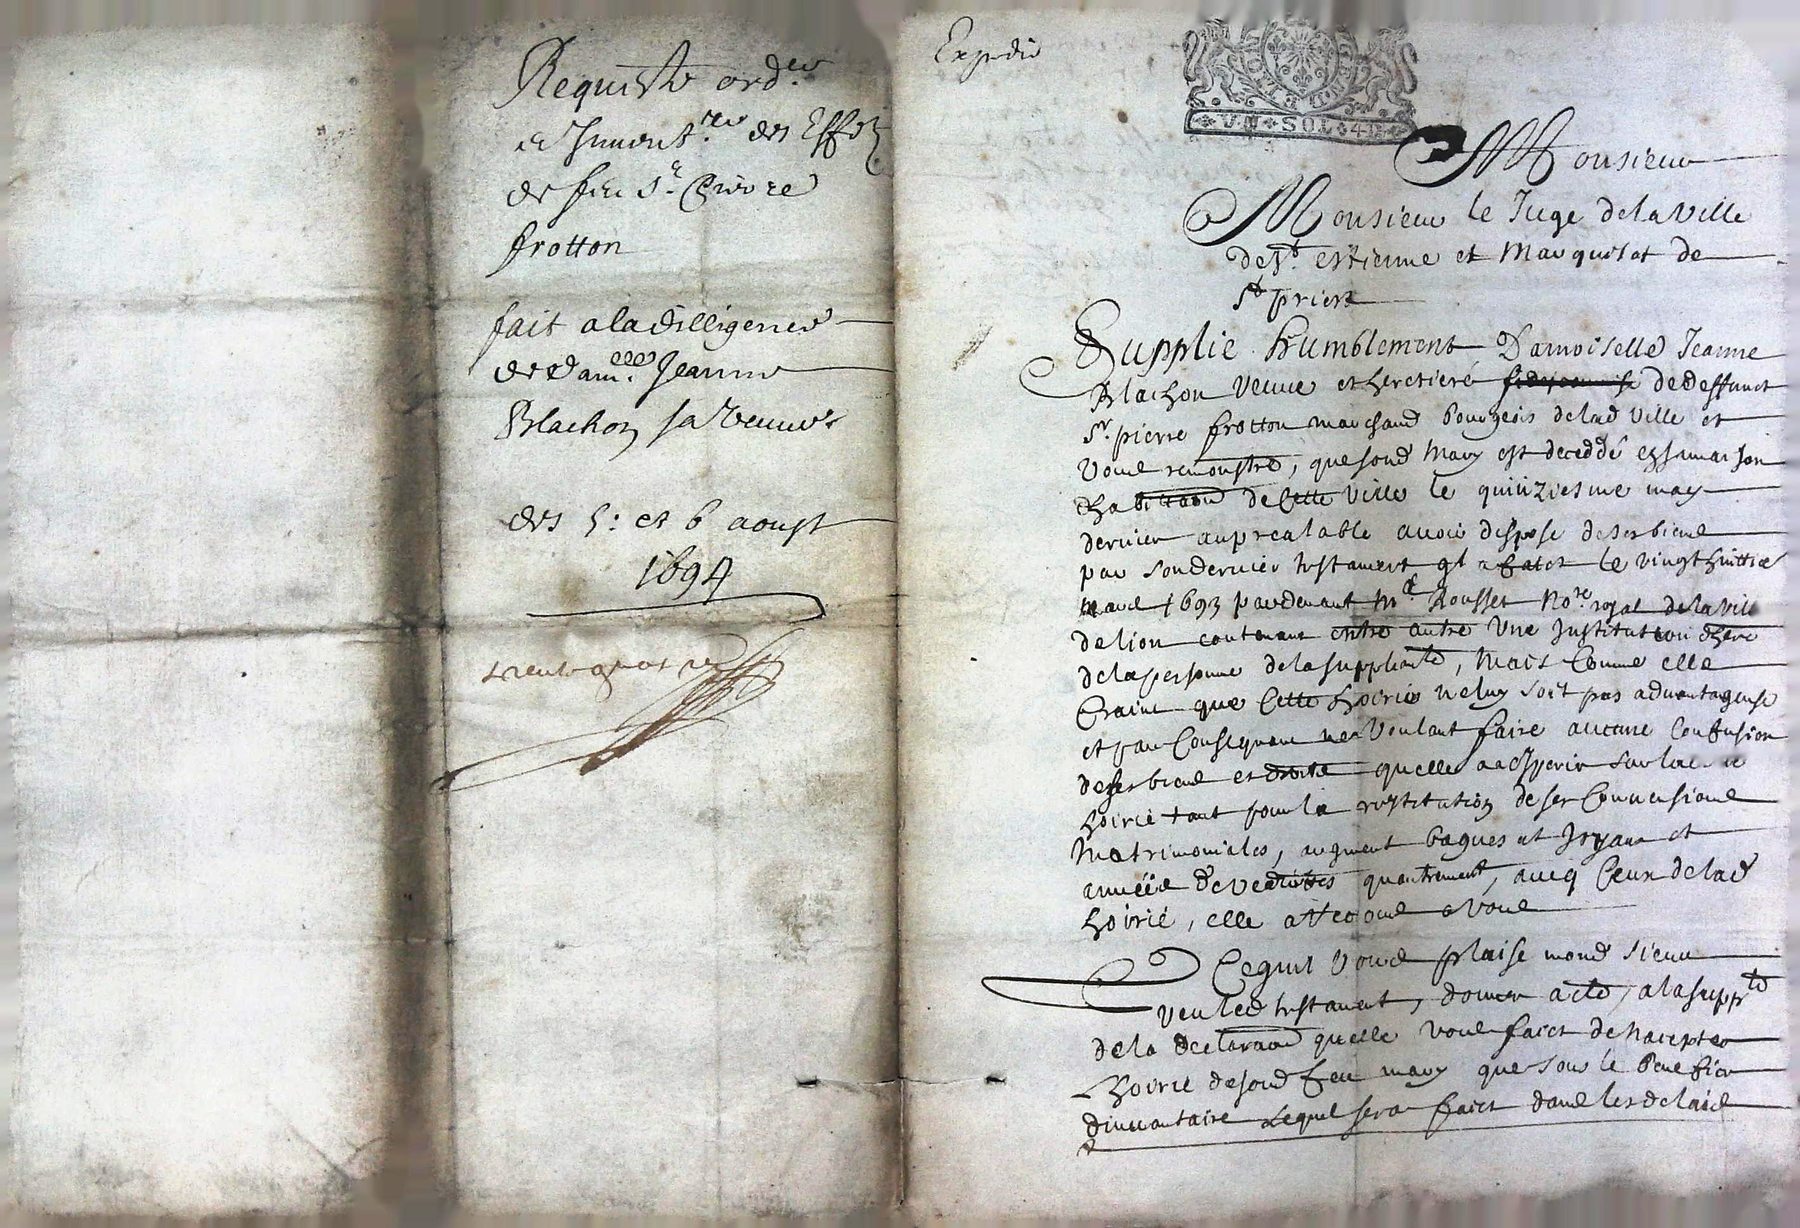 Requeste ord.re
et Invent.re des Effetz
de feu Sr. Pierre
frotton
fait a la dilligence
de dam.lle Jeanne
Blachon sa veuve
des 5: et 6 aoust
1694
Expedié
VN SOL 4D
Monsieur
Monsieur le Juge de la ville
de St. estienne et Marquisat de
St priest
Supplie humblement Damoiselle Jeanne
Blachon veuve et heretiere de deffunct
Sr. pierre frotton marchand bourgeois de lad ville et
vous remonstre, que sond mary est deceddé en sa maison
d'habitaon de cette ville le quinziesme may
dernier au prealable avoir dispose de ses biens
par son dernier testament ql a faict le vingt huittie
mars 1693 pardevant Me Rousset no.re royal de la ville
de lion contenant entre autre une Institution d'here
de la personne de la suppliante, mais comme elle
craint que cette hoirie ne luy soit pas advantageuse
et par consequent ne voulant faire aucune confusion
de ses biens et droits quelle a a esperer sur lad
hoirie tant pour la restitution de ses convensions
matrimoniales, augment bagues et joyaux et
année de vedvittes quautrement, avecq ceux de lad
hoirie, elle a recours a vous
Ce quil vous plaise mond sieur
veu led testament, donner acte, a la supp.te
de la declaraon quelle vous faict de n'accepter
lhoirie de sond feu mary que sous le benefice
dinventaire lequel sera faict dans les delais